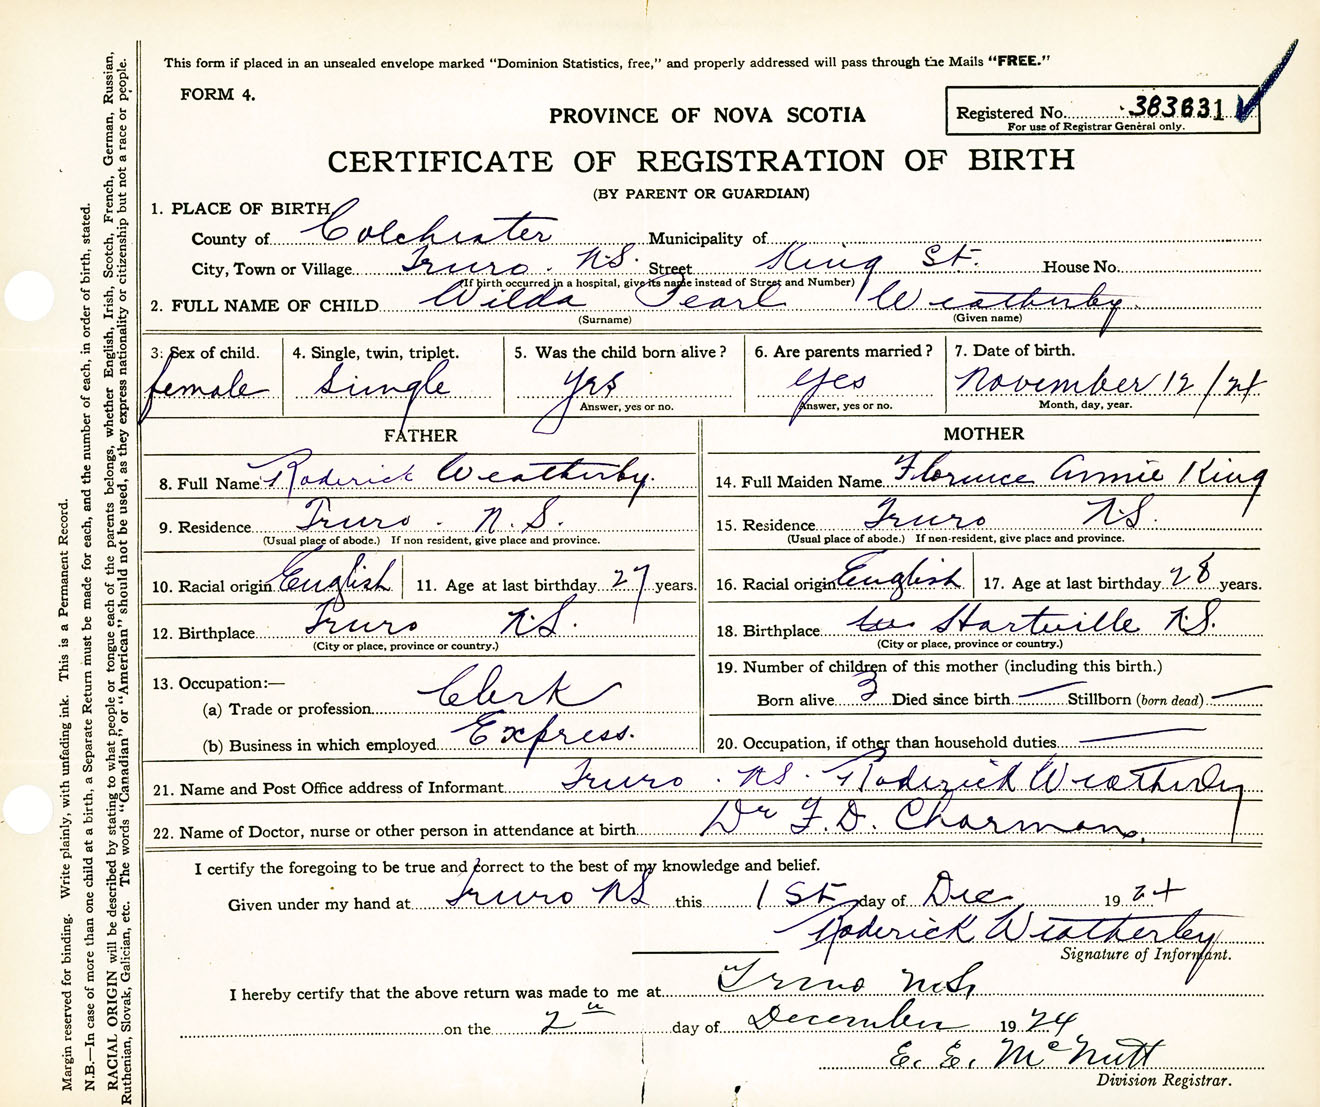 This form if placed in an unsealed envelope marked "Dominion Statistics, free," and properly addressed will pass through the Mails "FREE."
FORM 4.
PROVINCE OF NOVA SCOTIA
Registered No. 383631
For use of Registrar General only.
CERTIFICATE OF REGISTRATION OF BIRTH
(BY PARENT OR GUARDIAN)
1. PLACE OF BIRTH
County of Colchester Municipality of
City, Town or Village Truro. N.S. Street King St. House No.
(If birth occurred in a hospital, give its name instead of Street and Number)
2. FULL NAME OF CHILD Wilda Pearl Weatherby.
(Surname) (Given name)
3. Sex of child. 4. Single, twin, triplet. 5. Was the child born alive? 6. Are parents married? 7. Date of birth.
female Single Yes Yes November 12/24
Answer, yes or no. Answer, yes or no. Month, day, year.
FATHER MOTHER
8. Full Name Roderick Weatherby. 14. Full Maiden Name Florence Annie King
9. Residence Truro. N.S. 15. Residence Truro N.S.
(Usual place of abode.) If non resident, give place and province. (Usual place of abode.) If non-resident, give place and province.
10. Racial origin English 11. Age at last birthday 27 years. 16. Racial origin English 17. Age at last birthday 28 years.
12. Birthplace Truro N.S. 18. Birthplace Hartville N.S.
(City or place, province or country.) (City or place, province or country.)
19. Number of children of this mother (including this birth.)
13. Occupation:—
(a) Trade or profession Clerk Born alive 3 Died since birth — Stillborn (born dead) —
(b) Business in which employed Express. 20. Occupation, if other than household duties —
21. Name and Post Office address of Informant Truro. N.S. Roderick Weatherby
22. Name of Doctor, nurse or other person in attendance at birth Dr F. D. Charman.
I certify the foregoing to be true and correct to the best of my knowledge and belief.
Given under my hand at Truro N.S this 1 St day of Dec 1924
Roderick Weatherby
Signature of Informant.
I hereby certify that the above return was made to me at Truro N.S,
on the 2" day of December 1924
E. E. McNutt
Division Registrar.
Margin reserved for binding. Write plainly, with unfading ink. This is a Permanent Record.
N.B.—In case of more than one child at a birth, a Separate Return must be made for each, and the number of each, in order of birth, stated.
RACIAL ORIGIN will be described by stating to what people or tongue each of the parents belongs, whether English, Irish, Scotch, French, German, Russian,
Ruthenian, Slovak, Galician, etc. The words "Canadian" or "American" should not be used, as they express nationality or citizenship but not a race or people.